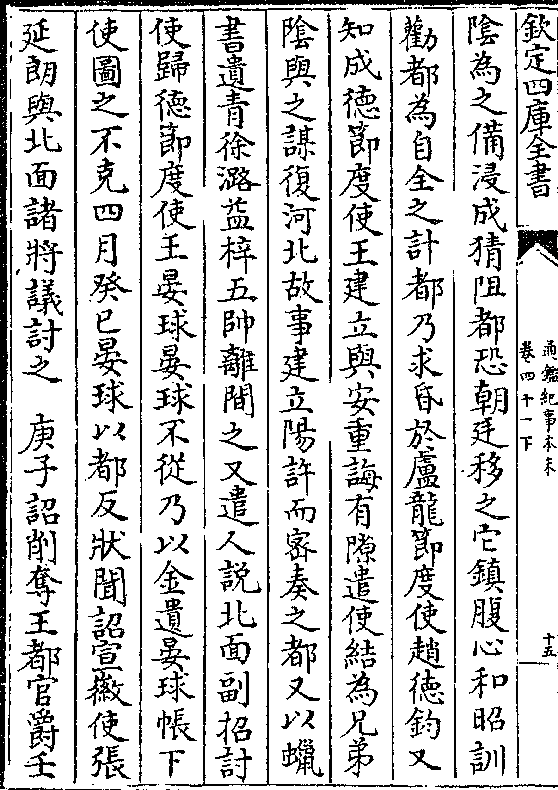 欽定四庫全書
通鑑紀事本末
卷四十一下
十五
陰為之備浸成猜阻都恐朝廷移之它鎮腹心和昭訓
勸都為自全之計都乃求昏於盧龍節度使趙德鈞又
知成德節度使王建立與安重誨有隙遣使結為兄弟
陰與之謀復河北故事建立陽許而密奏之都又以蠟
書遺青徐潞益梓五帥離間之又遣人說北面副招討
使歸德節度使王晏球晏球不從乃以金遺晏球帳下
使圖之不克四月癸巳晏球以都反狀聞詔宣徽使張
延朗與北面諸將議討之 庚子詔削奪王都官爵壬